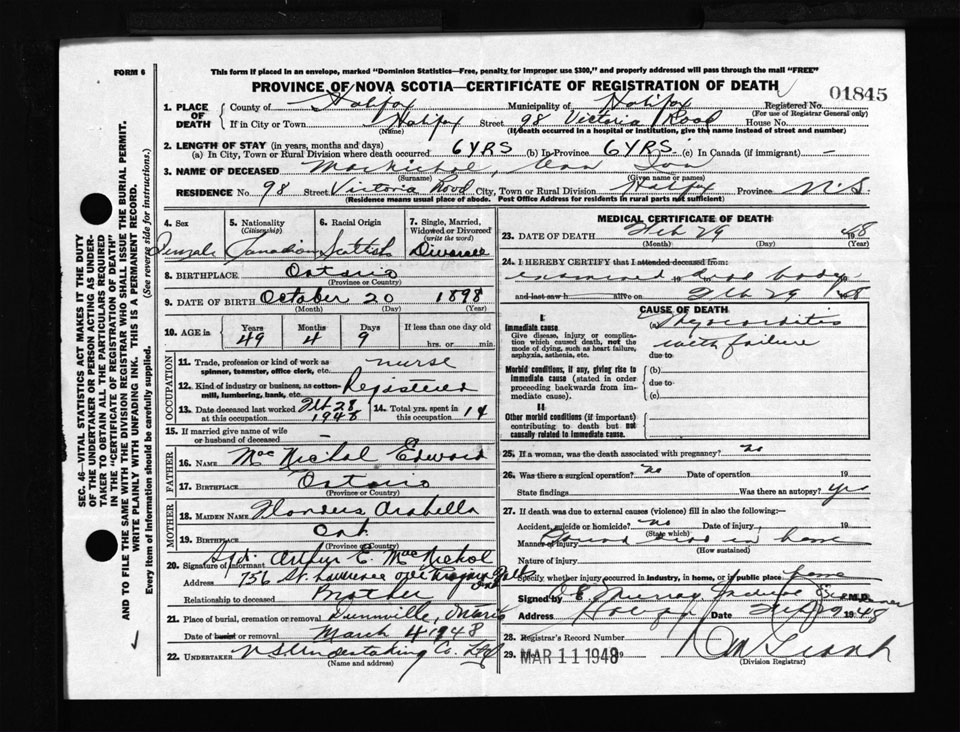 FORM 6
This form if placed in an envelope, marked "Dominion Statistics—Free, penalty for improper use $300," and properly addressed will pass through the mail "FREE"
PROVINCE OF NOVA SCOTIA—CERTIFICATE OF REGISTRATION OF DEATH
1. PLACE OF DEATH
County of Halifax Municipality of Halifax Registered No. 01845
(For use of Registrar General only)
If in City or Town Halifax Street 98 Victoria Road House No.
(Name) (If death occurred in a hospital or institution, give the name instead of street and number)
2. LENGTH OF STAY (in years, months and days)
(a) In City, Town or Rural Division where death occurred 6 YRS (b) In Province 6 YRS (c) In Canada (if immigrant) —
3. NAME OF DECEASED
(Surname) (Given name or names)
RESIDENCE No. 98 Street Victoria Road City, Town or Rural Division Halifax Province N.S.
(Residence means usual place of abode. Post Office Address for residents in rural parts not sufficient)
SEC. 46—VITAL STATISTICS ACT MAKES IT THE DUTY
OF THE UNDERTAKER OR PERSON ACTING AS UNDER-
TAKER TO OBTAIN ALL THE PARTICULARS REQUIRED
IN THE "CERTIFICATE OF REGISTRATION OF DEATH"
AND TO FILE THE SAME WITH THE DIVISION REGISTRAR WHO SHALL ISSUE THE BURIAL PERMIT.
WRITE PLAINLY WITH UNFADING INK. THIS IS A PERMANENT RECORD.
Every item of information should be carefully supplied. (See reverse side for instructions.)
4. Sex Female
5. Nationality (Citizenship) Canadian
6. Racial Origin Scottish
7. Single, Married, Widowed or Divorced (write the word) Divorcee
8. BIRTHPLACE Ontario
(Province or Country)
9. DATE OF BIRTH October 20 1898
(Month) (Day) (Year)
10. AGE in Years 49 Months 4 Days 9 If less than one day old hrs. or min.
OCCUPATION
11. Trade, profession or kind of work as spinner, teamster, office clerk, etc. nurse
12. Kind of industry or business, as cotton-mill, lumbering, bank, etc. Registered
13. Date deceased last worked at this occupation Feb 28 1948
14. Total yrs. spent in this occupation 14
15. If married give name of wife or husband of deceased —
FATHER
16. NAME MacNichol Edward
17. BIRTHPLACE Ontario
(Province or Country)
MOTHER
18. MAIDEN NAME Arabella
19. BIRTHPLACE Ont.
(Province or Country)
20. Signature of informant Sgd. Arthur E. MacNichol
Address 756 St. Lawrence Ave Niagara Falls Ont
Relationship to deceased Brother
21. Place of burial, cremation or removal Dunnville, Ontario
Date of burial or removal March 4 1948
22. UNDERTAKER N S Undertaking Co. Ltd
(Name and address)
MEDICAL CERTIFICATE OF DEATH
23. DATE OF DEATH Feb 29 1948
(Month) (Day) (Year)
24. I HEREBY CERTIFY that I attended deceased from:
examined dead body
and last saw h alive on Feb 29 1948
CAUSE OF DEATH
I.
Immediate cause
Give disease, injury or complication which caused death, not the mode of dying, such as heart failure, asphyxia, asthenia, etc.
(a) Myocarditis
with failure
due to
Morbid conditions, if any, giving rise to immediate cause (stated in order proceeding backwards from immediate cause).
(b)
due to
(c)
II
Other morbid conditions (if important) contributing to death but not causally related to immediate cause.
25. If a woman, was the death associated with pregnancy? No
26. Was there a surgical operation? No Date of operation 19
State findings Was there an autopsy? yes
27. If death was due to external causes (violence) fill in also the following:—
Accident, suicide or homicide? No Date of injury 19
(State which)
Manner of injury Found dead in home
(How sustained)
Nature of injury
Specify whether injury occurred in industry, in home, or in public place home
Signed by M.D.
Address Date Feb 29 1948
28. Registrar's Record Number
29. MAR 11 1948
(Division Registrar)